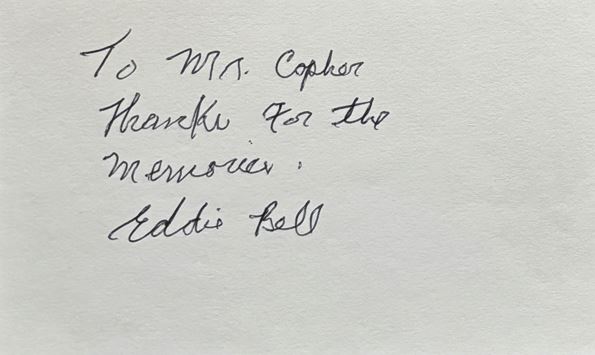 To Mr. Copher
Thanks For the
Memories.
Eddie Bell